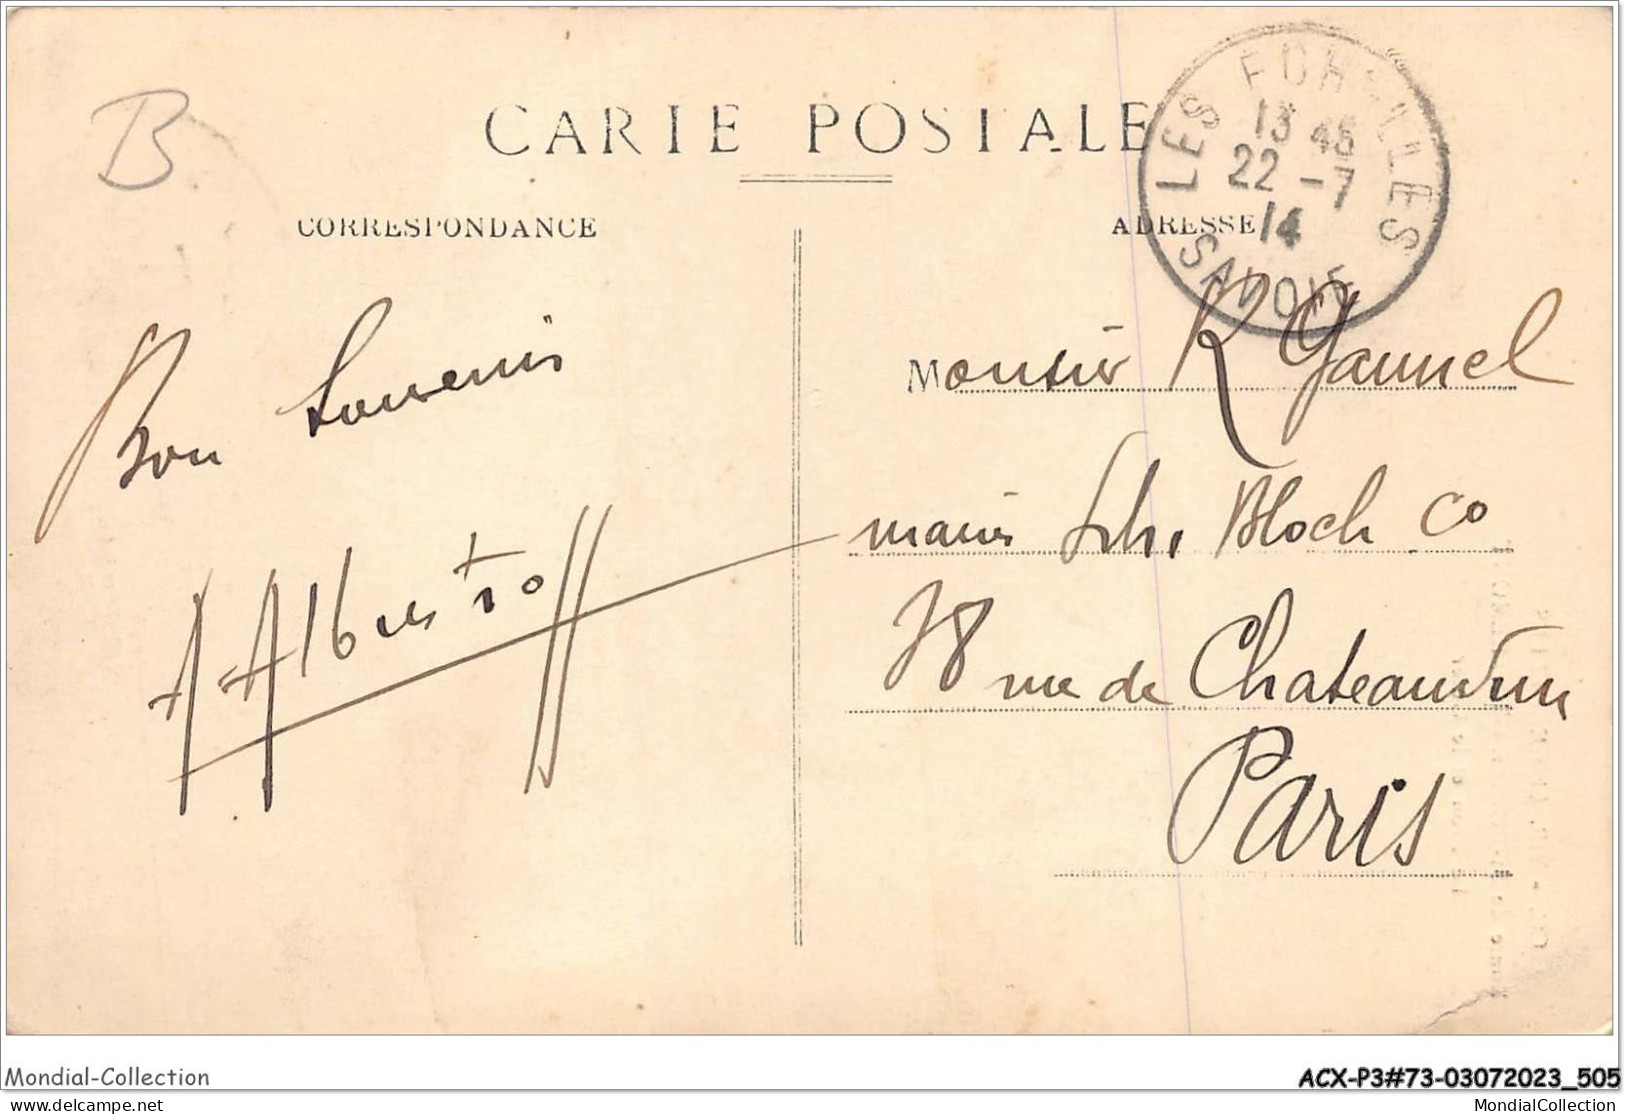 B
CARTE POSTALE
CORRESPONDANCE
ADRESSE
LES FOR-LLES
13 45
22 -7
14
SAVOIE
Bon Souvenir
A Albestroff
Monsieur R Gaunel
Bloch Co
38 rue de Chateaudun
Paris
Mondial-Collection
ACX-P3#73-03072023_505
mondial-collection.delcampe.net
MondialCollection